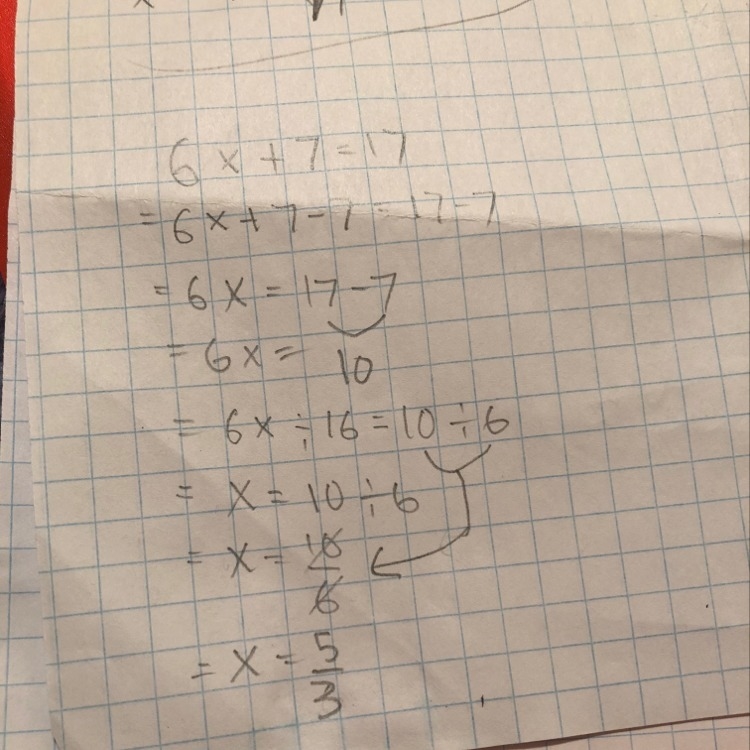 6x + 7 = 17
= 6x + 7 - 7 = 17 - 7
= 6x = 17 - 7
= 6x = 10
= 6x ÷ 16 = 10 ÷ 6
= x = 10 ÷ 6
= x = 10/6
= x = 5/3